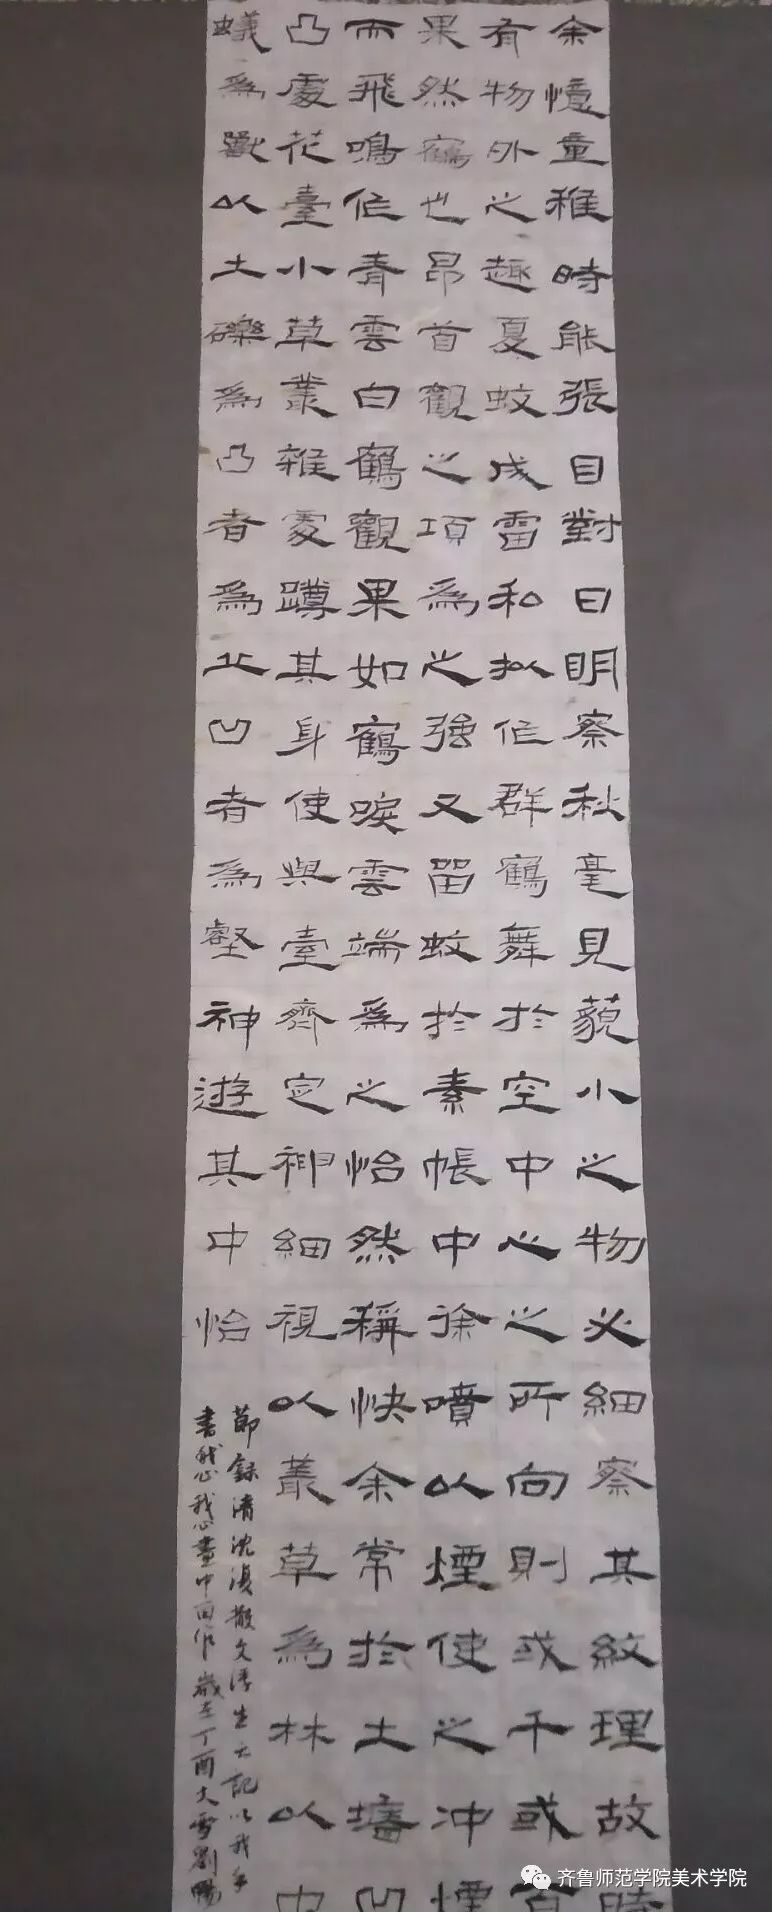 余憶童稚時能張目對日明察秋毫見藐小之物必細察其紋理故時
有物外之趣夏蚊成雷和拟作群鶴舞於空中心之所向則或千或百
果然鶴也昂首觀之項為之強又留蚊於素帳中徐噴以煙使之冲煙
而飛鳴作青雲白鶴觀果如鶴唳雲端為之怡然稱快余常於土墻凹
凸處花臺小草叢雜處蹲其身使與臺齊定神細視以叢草為林以虫
蟻為獸以土礫為凸者為丘凹者為壑神遊其中怡
節錄清沈復散文浮生六記以我手
書我心我心畫中由作歲在丁酉大雪劉
齐鲁师范学院美术学院